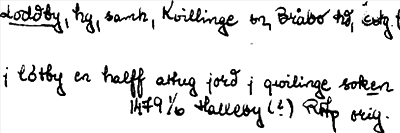 Loddby, hg, samh, Kvillinge sn, Bråbo hd,
j lötby en halff attug jord j quilinge soken
1479 1/6 Halleby (?) RAp orig.